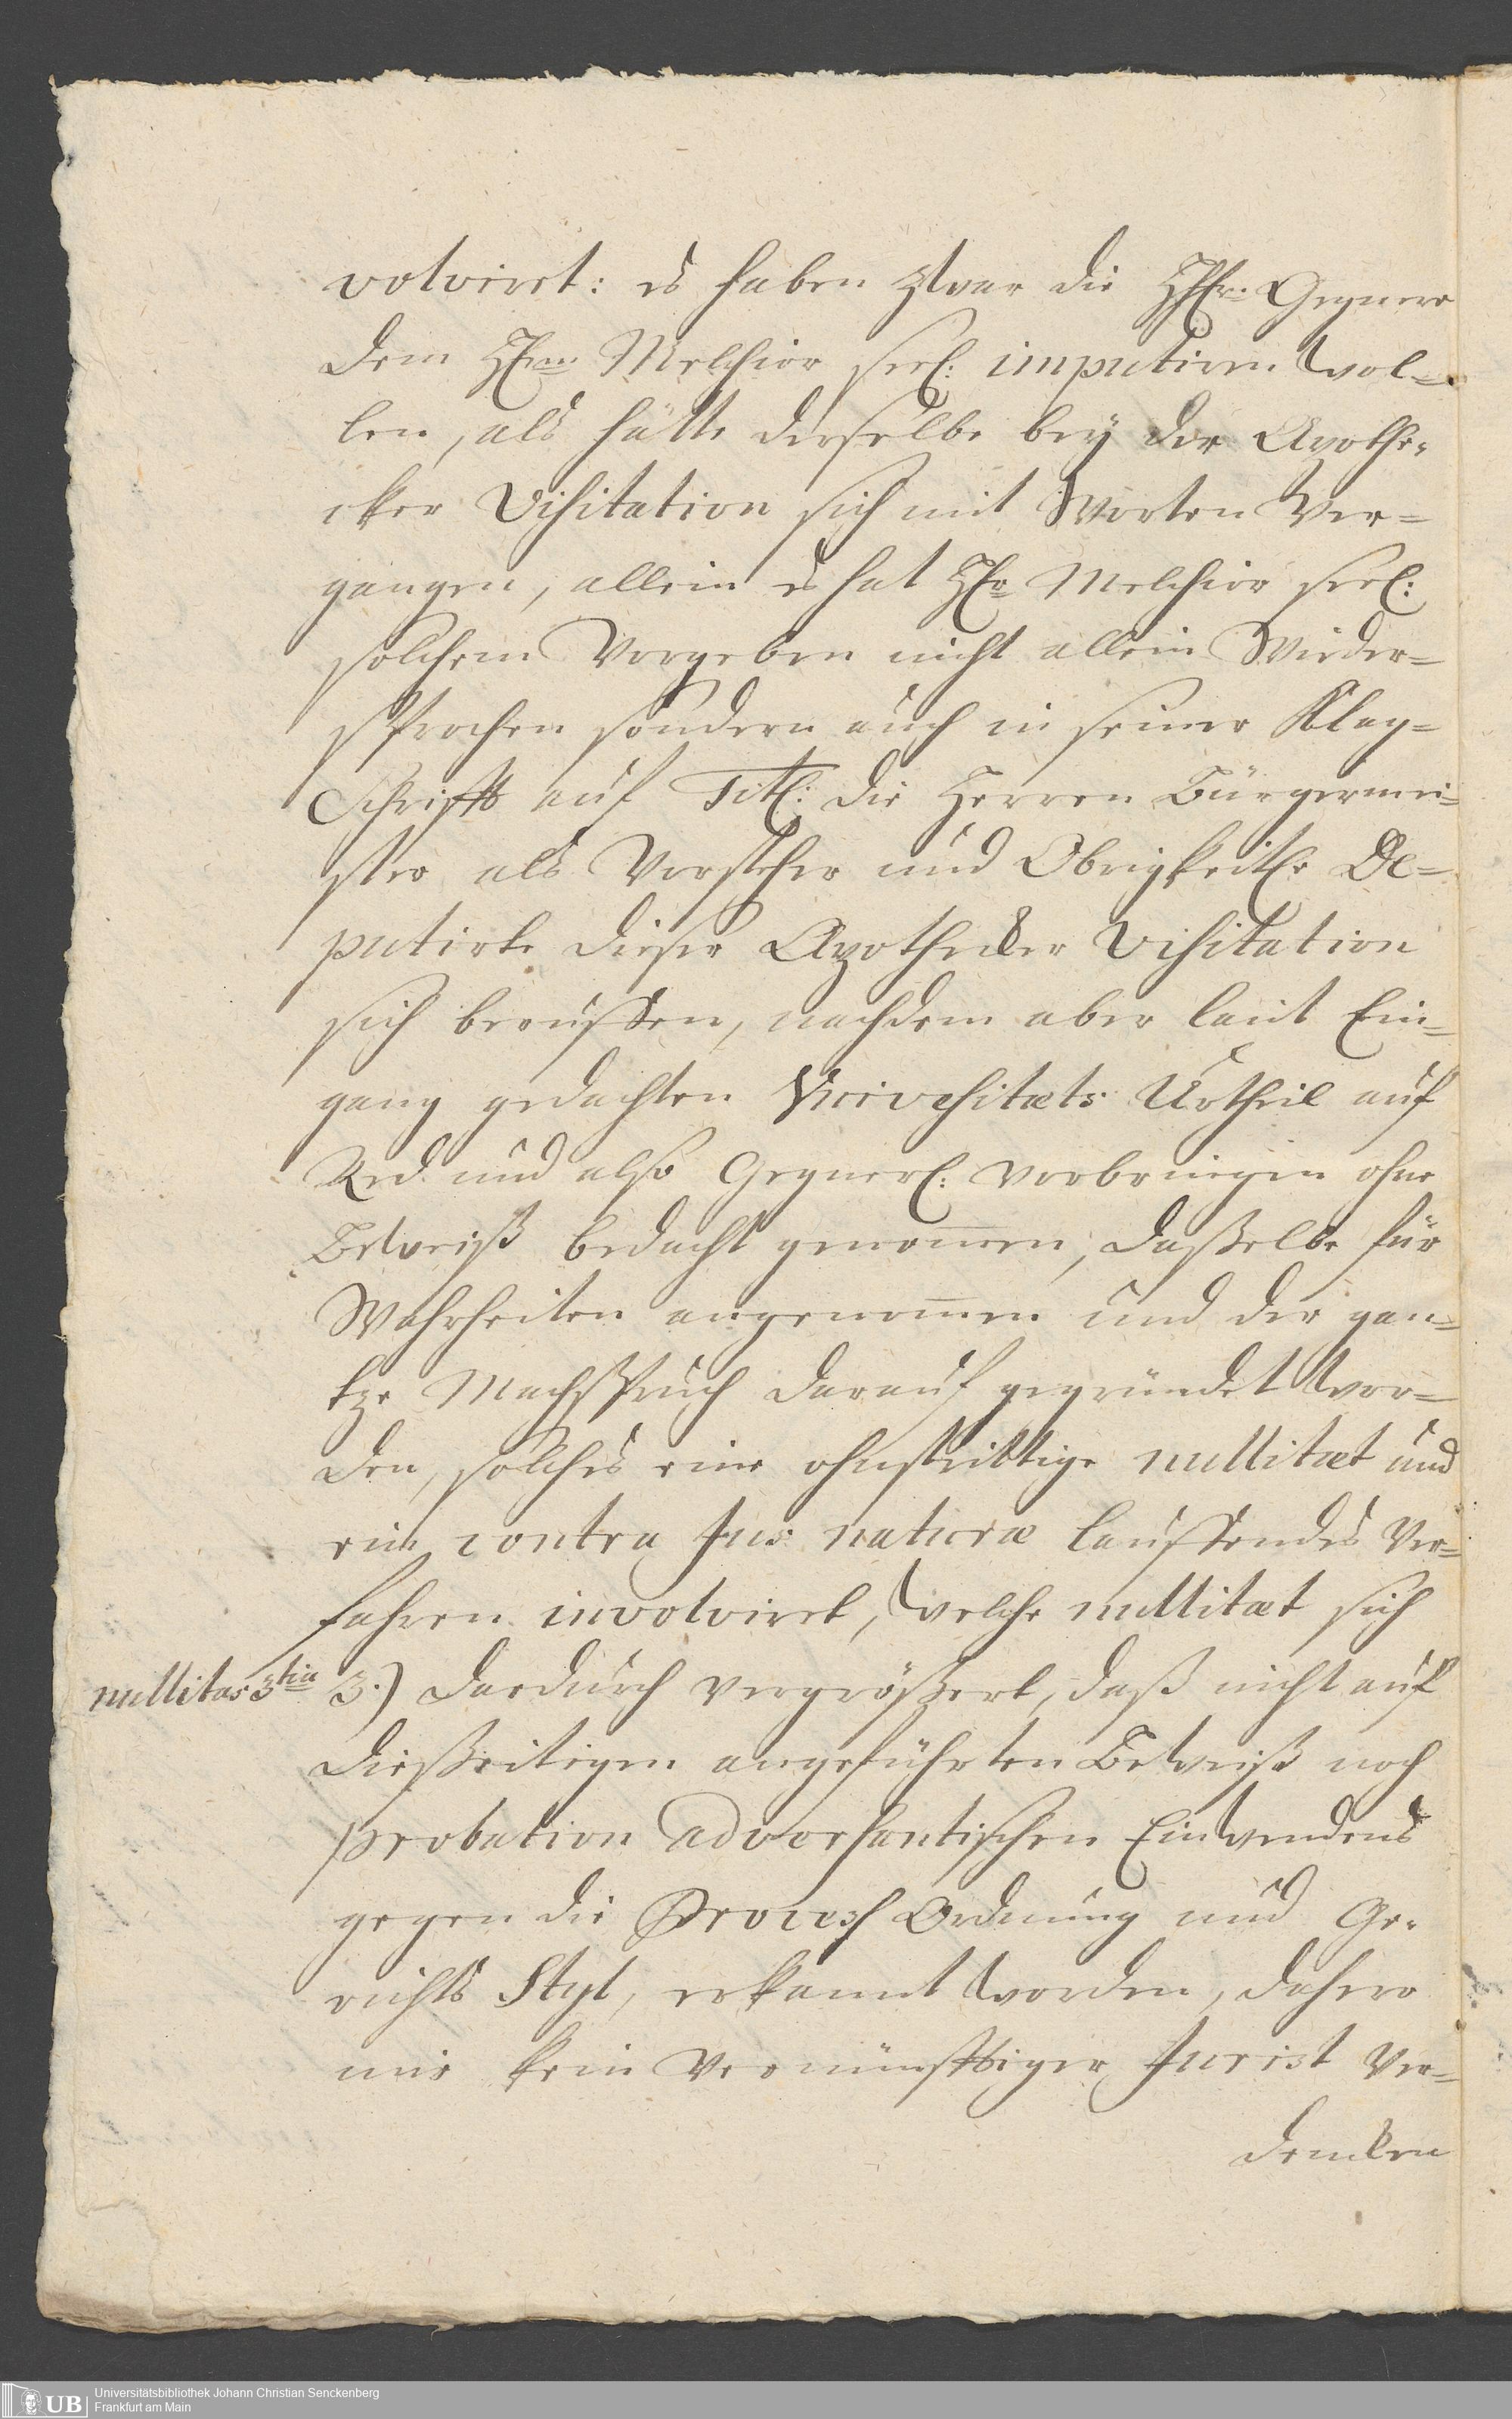 volviret: es haben zwar die HHr. Gegnere
dem Hrn. Melchior seel: imputiren wol=
len, als hätte derselbe bey der Apothe=
cker Visitation sich mit Worten Ver=
gangen, allein es hat Hr Melchior seel:
solchem Vorgeben nicht allein Wieder=
sprochen sondern auch in seiner Klag=
Schrifft auf Titl: die Herren Bürgermei=
ster als Vorsteher und Obrigkeitl De=
putirte dieser Apothecker Visitation
sich beruffen, nachdem aber laut Ein=
gang gedachten Universitæts Urtheil auf
Red und also Gegnerl: vorbringen ohne
Beweiß bedacht genommen, dasselbe für
Wahrheiten angenommen und der gan=
tze Machtspruch darauf gegründet wor=
den, solches eine ohnstrittige nullitæt und
ein contra Jus naturæ lauffendes Ver=
fahren involviret, welche nullitæt sich
nullitas 3tia 3.) dardurch vergrößert, daß nicht auf
diesseitigen angeführten Beweiß noch
probation adversantischen Einwendens
gegen die Process Ordnung und Ge=
richts Styl, erkannt worden, dahero
mir kein Vernünfftiger Jurist Ver=
dencken
Universitätsbibliothek Johann Christian Senckenberg
Frankfurt am Main
UB